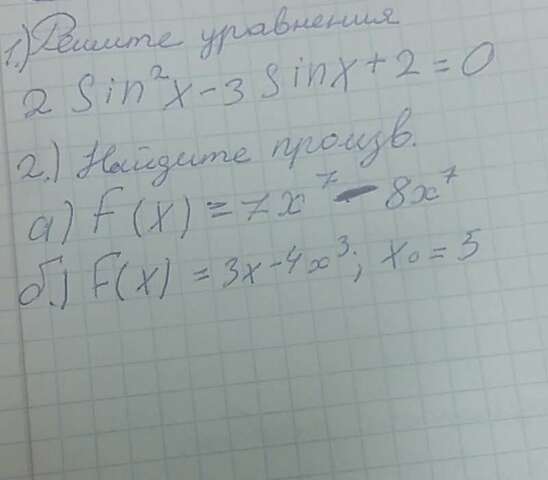 1.) Решите уравнения
2 Sin²x - 3 Sinx + 2 = 0
2.) Найдите произв.
а) F(x) = 7x⁷ - 8x⁷
б.) F(x) = 3x - 4x³; x₀ = 5